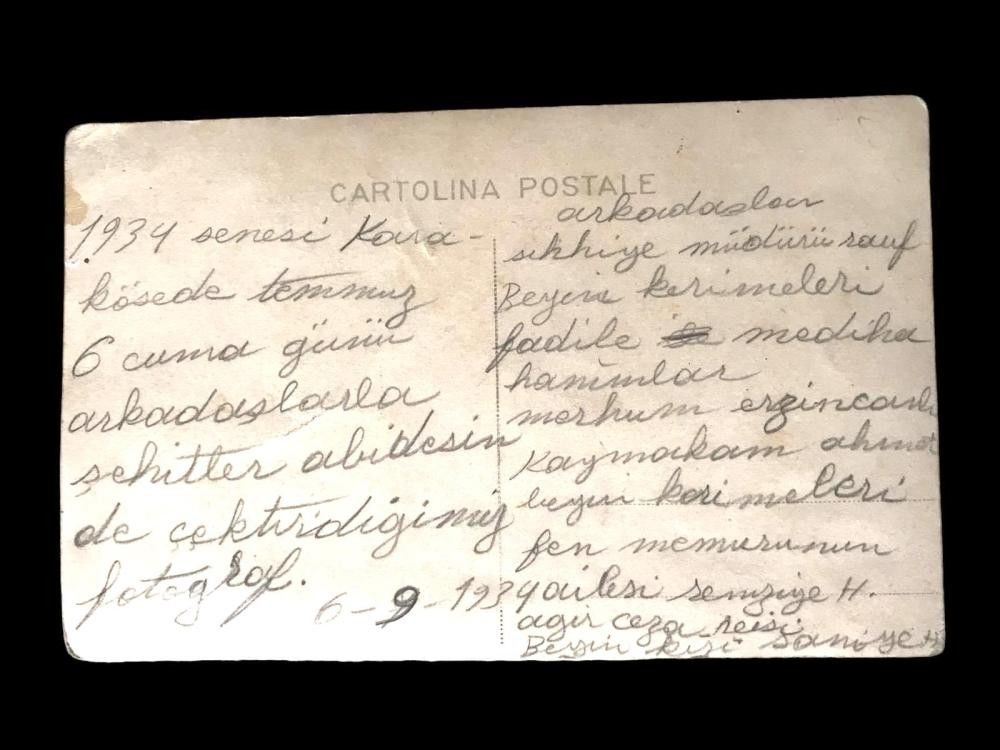 CARTOLINA POSTALE
1934 senesi Kara-
kösede temmuz
6 cuma günü
arkadaşlarla
şehitler abidesin
de çektirdiğimiz
fotoğraf.
6-9-1934
arkadaşları
sıhhiye müdürü rauf
Beyin kerimeleri
fadile mediha
hanımlar
merhum erzincanlı
Kaymakam ahmet
beyin kerimeleri
fen memurunun
ailesi semziye H.
ağır ceza reisi
Beyin kızı Saniye H